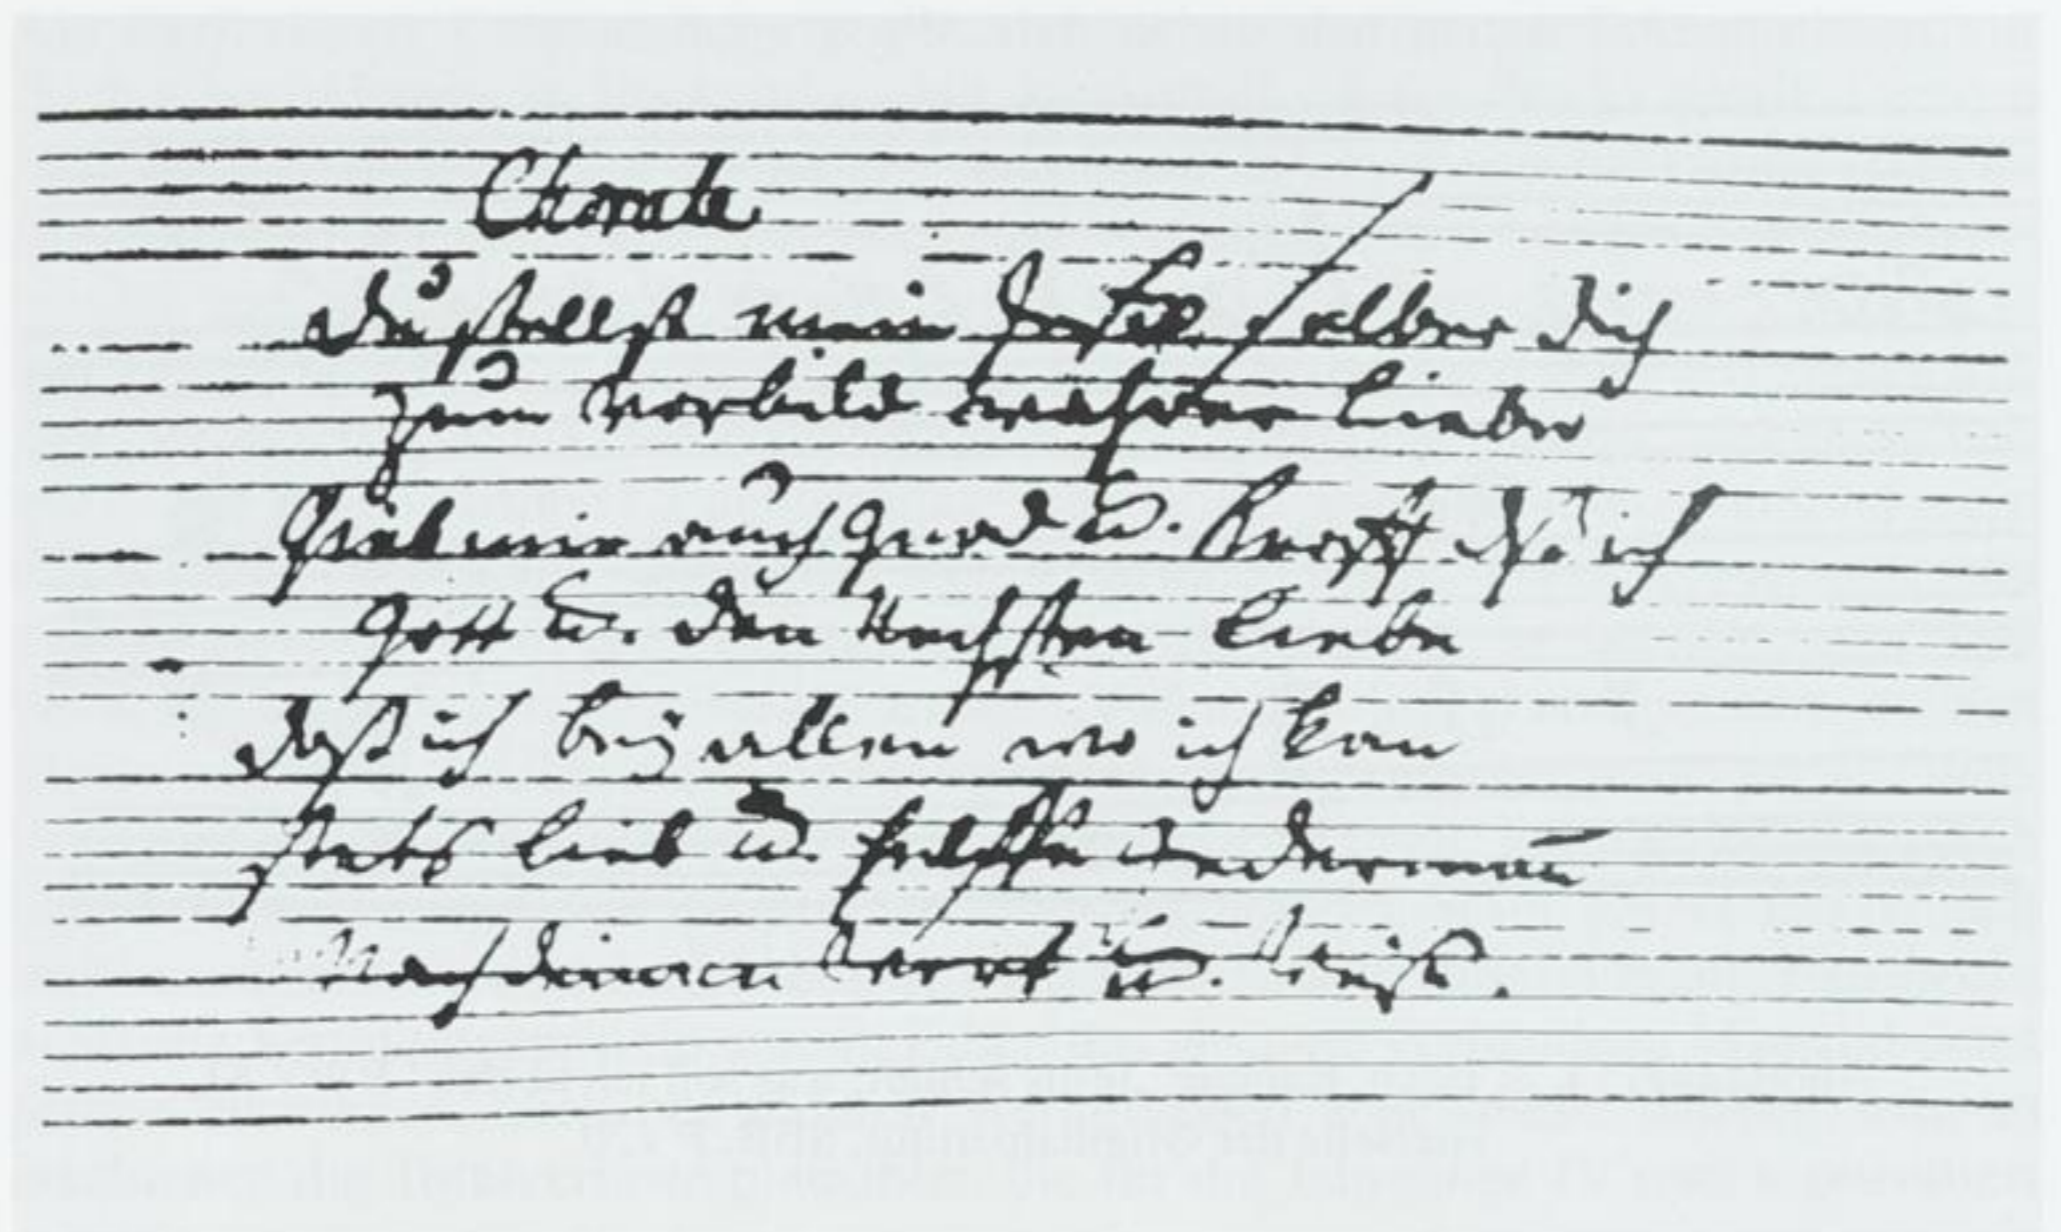 Chorale
Du stellst mein Jesu selber dich
zum Vorbild wahrer Liebe
Gieb mir auch Gnad u. Krafft dß ich
Gott u. den Nechsten Liebe
daß ich bey allem wo ich kan
stets lieb u. helffe iedermañ
Nach deinem Wort u. Weise.